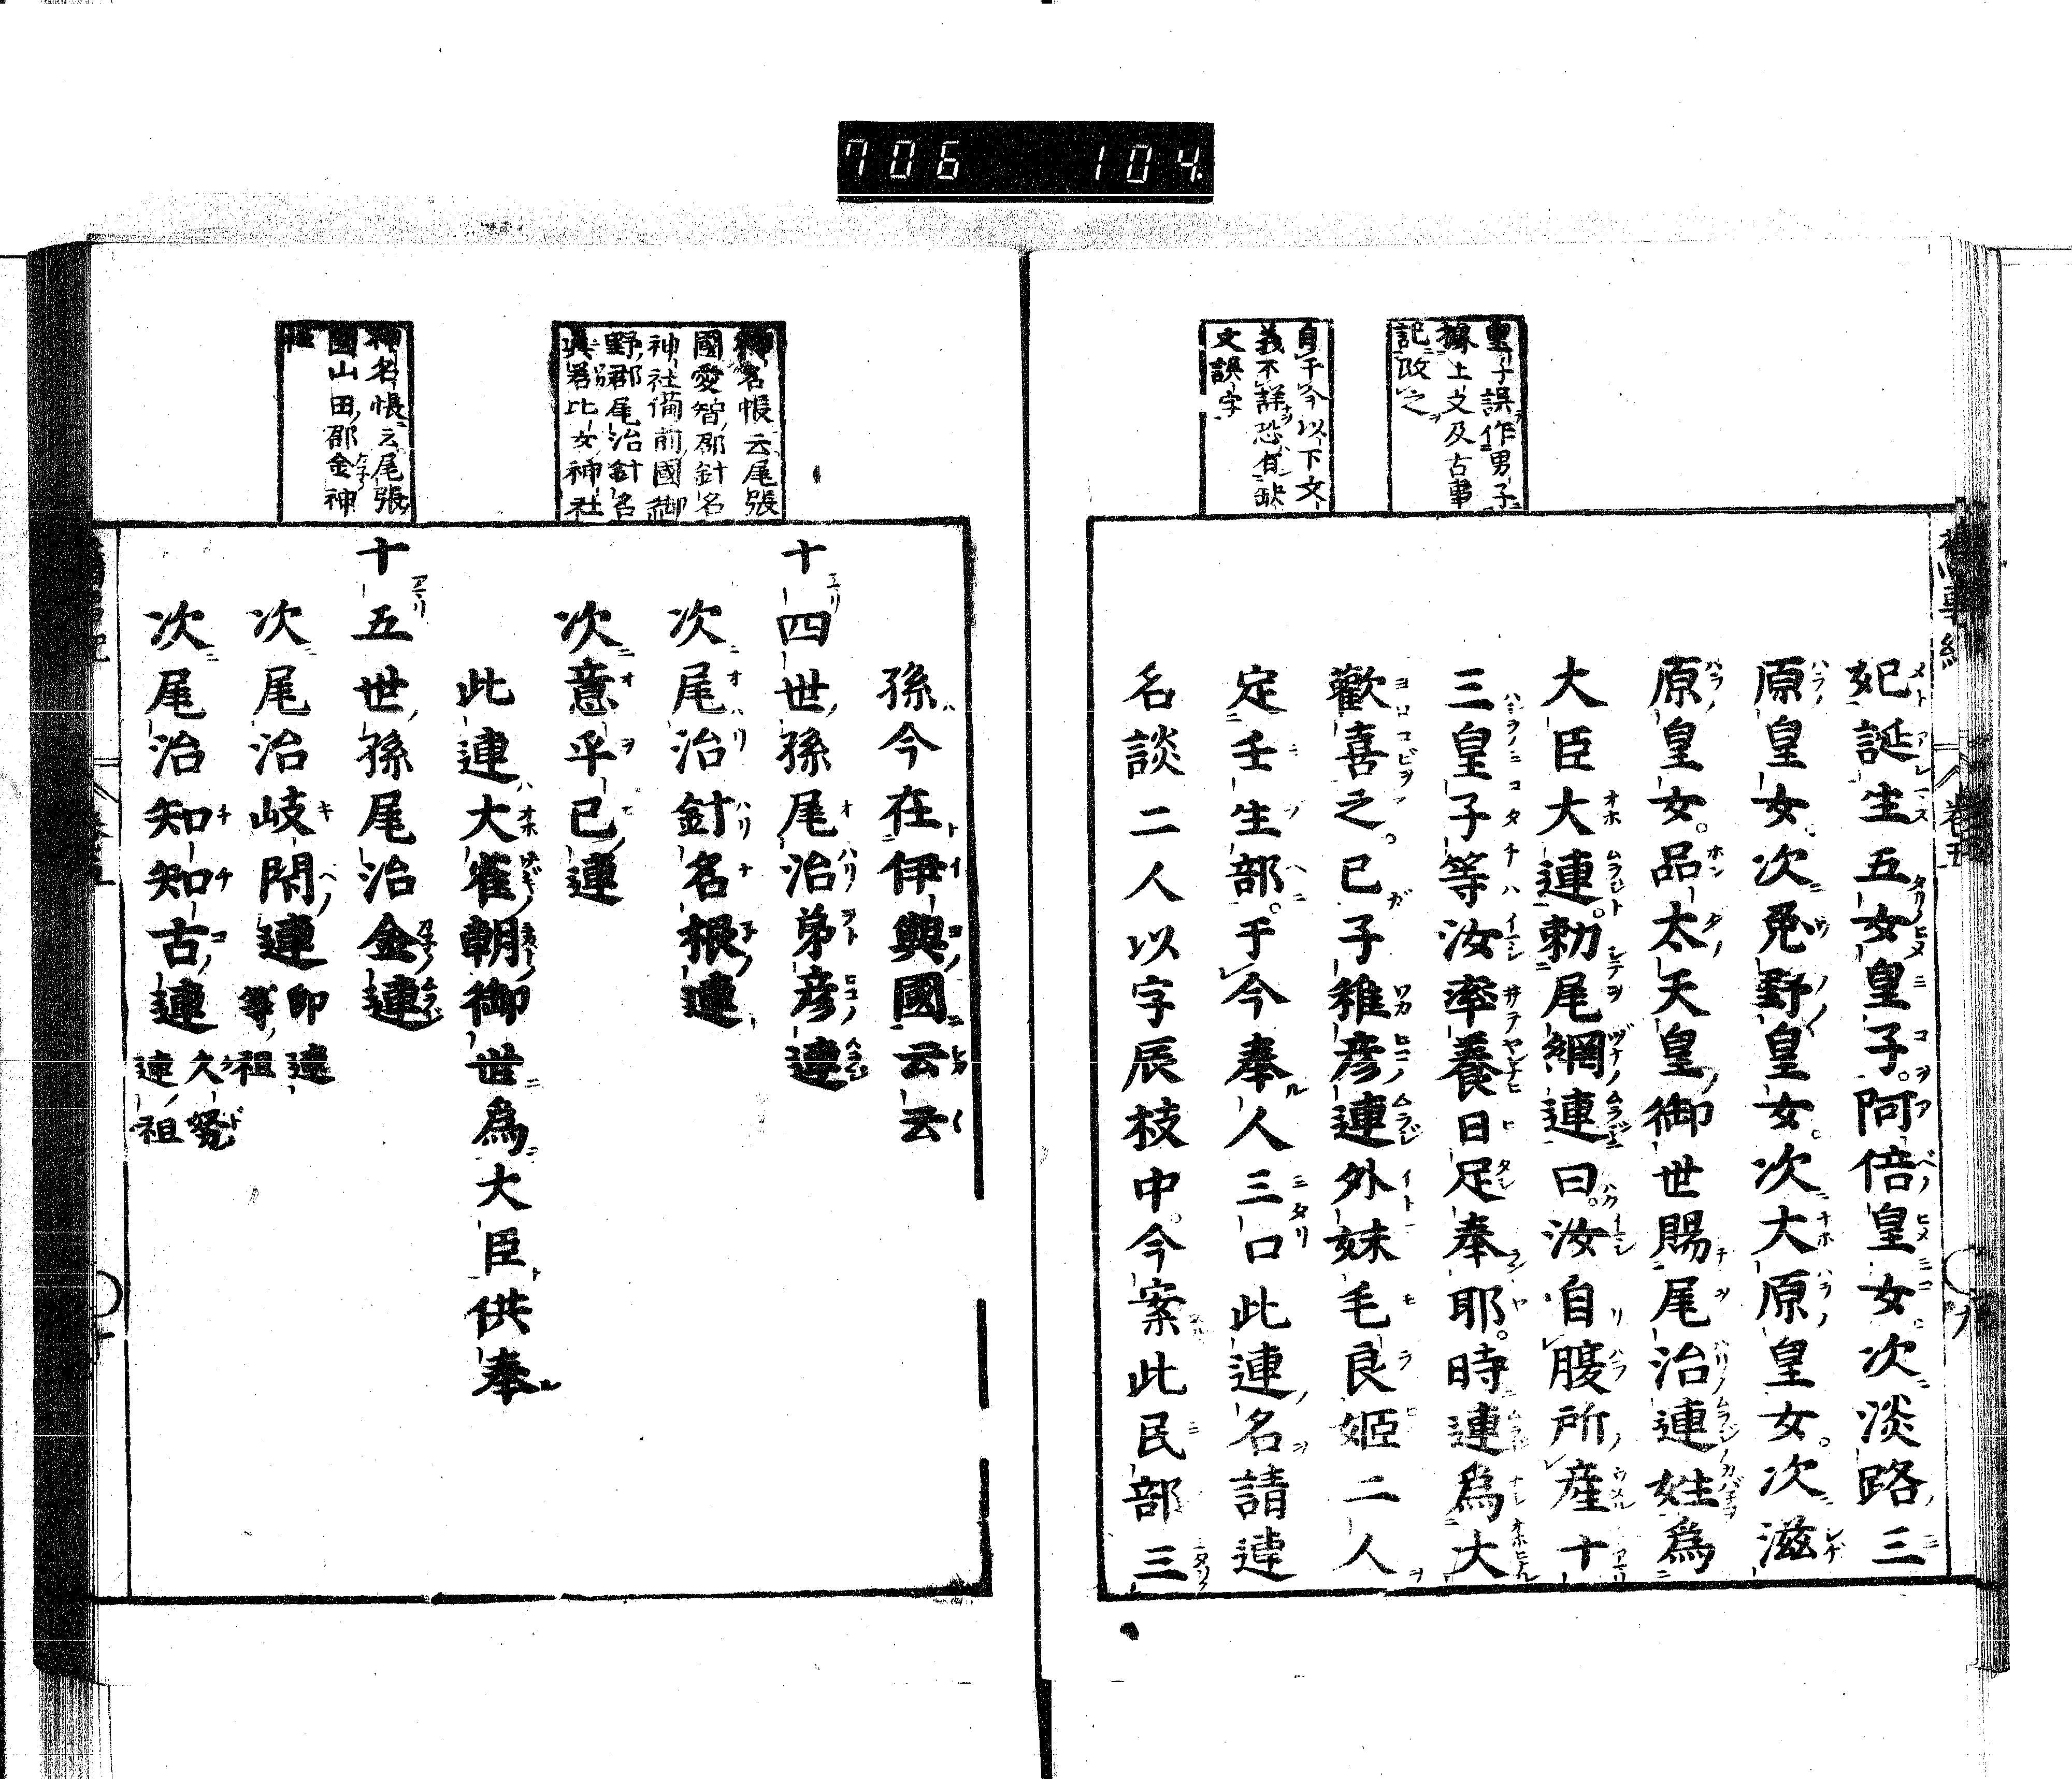 706 104.
皇子誤作男子
據上文及古事
記改之
自于今以下文
義不詳恐有缺
文誤字
妃誕生五女皇子。阿倍皇女。次淡路三
原皇女。次菟野皇女。次大原皇女。次滋
原皇女。品太天皇御世賜尾治連姓爲
大臣大連。勅尾綱連曰。汝自腹所產十
三皇子等汝率養日足奉耶。時連爲大
歡喜之。已子稚彥連外妹毛良姬二人
定壬生部。于今奉人三口此連名請連
名談二人以字辰枝中。今案此民部三
神名帳云尾張
國愛智郡針名
神社備前國御
野郡尾治針名
眞若比女神社
神名帳云尾張
國山田郡金神
社
孫今在伊與國云云
十四世孫尾治弟彥連
次尾治針名根連
次意乎巳連
此連大雀朝御世爲大臣供奉
十五世孫尾治金連
次尾治岐閇連 即連
等祖
次尾治知知古連 久努
連祖